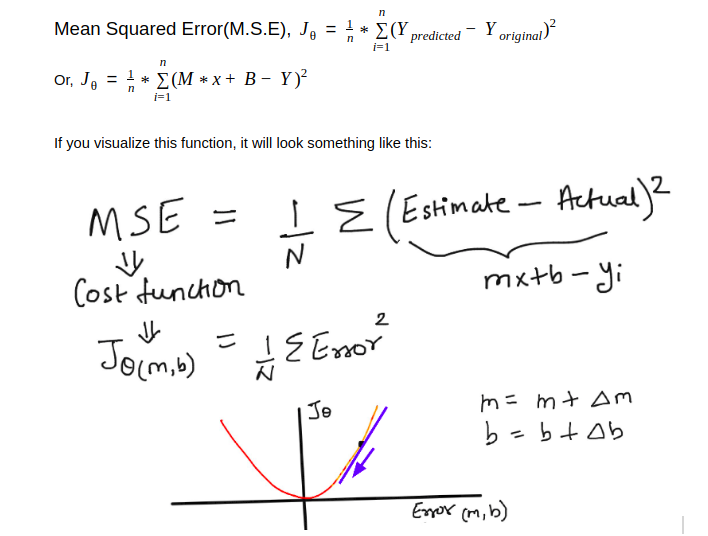 Mean Squared Error(M.S.E), J_θ = 1/n * n∑i=1 (Y predicted − Y original)²
Or, J_θ = 1/n * n∑i=1 (M * x + B − Y)²
If you visualize this function, it will look something like this:
MSE = 1/N Σ (Estimate − Actual)²
⇓ mx+b − yi
Cost function
⇓
Jθ(m,b) = 1/N Σ Error²
Jθ
m = m + Δm
b = b + Δb
Error (m,b)